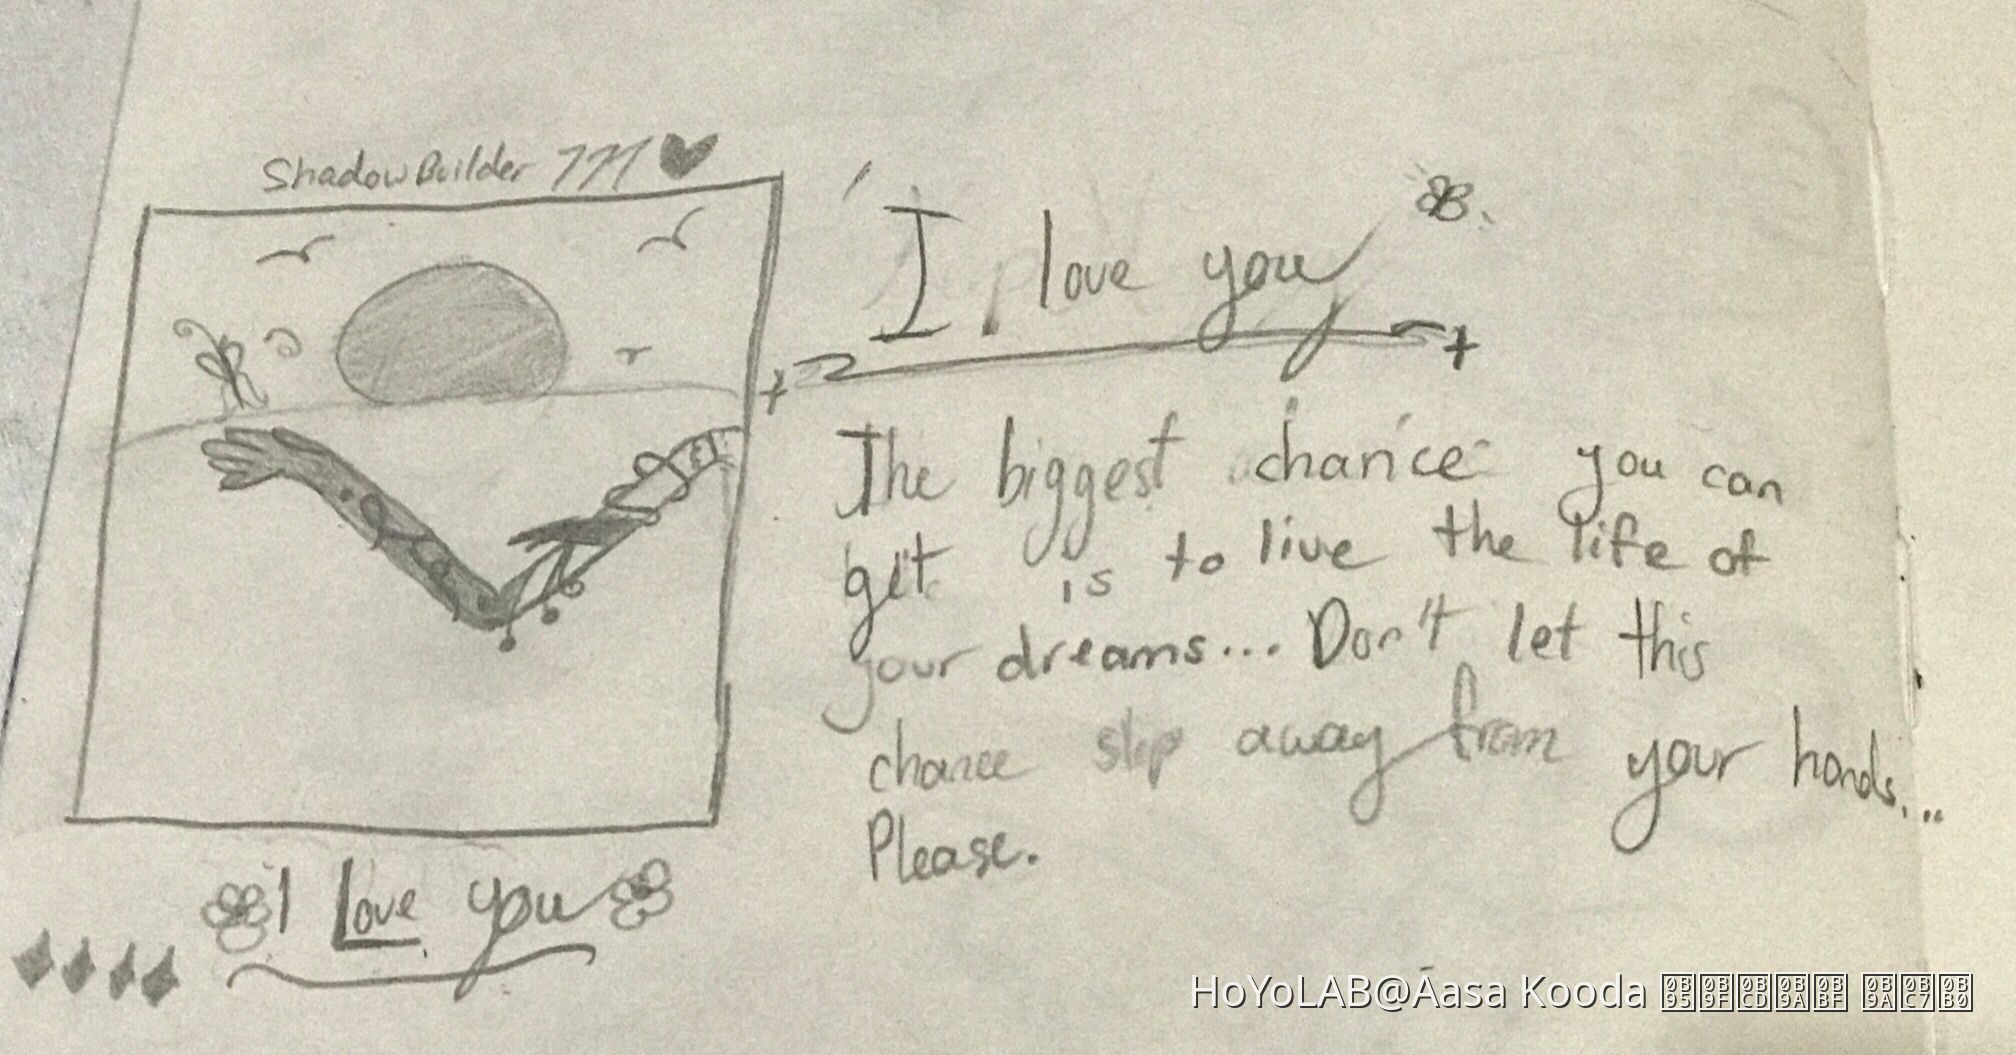 ShadowBuilder 777
I love you
The biggest chance you can
get is to live the life of
your dreams... Don't let this
chance slip away from your hands...
Please.
I Love you
HoYoLAB@Aasa Kooda